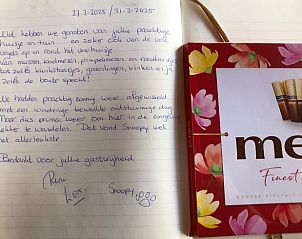 27-3-2025 / 31-3-2025
Wat hebben we genoten van jullie prachtige
huisje en tuin en zeker ook van de vele
vogels op en rond het voerhuisje.
Van mussen, koolmezen, pimpelmezen en roodborstjes
tot zelfs kuifkoolmees, groenlingen, vinken en ja
zelfs de bonte specht!
We hadden prachtig zonnig weer, afgewisseld
met een winderige bewolkte onstuimige dag
Maar dus prima weer om hier in de omgeving
lekker te wandelen. Dat vond Snoopy wel
het allerleukste.
Bedankt voor jullie gastvrijheid
Lex
Snoopy
mer
Finest
GROSSE VIELFALT